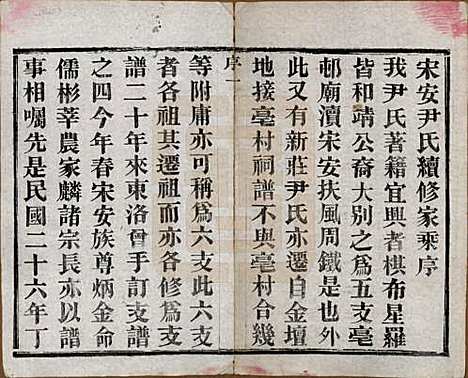 宋安尹氏續修家乘序
我尹氏著籍宜興者棋布星羅
皆和靖公裔大別之為五支亳
邨廟瀆宋安扶風周鐵是也外
此又有新莊尹氏亦遷自金壇
地接亳村祠譜不與亳村合幾
序一
等附庸亦可稱為六支此六支
者各祖其遷祖而亦各修為支
譜二十年來東洛曾手訂支譜
之四今年春宋安族尊炳金命
儒彬莘農家麟諸宗長亦以譜
事相囑先是民國二十六年丁